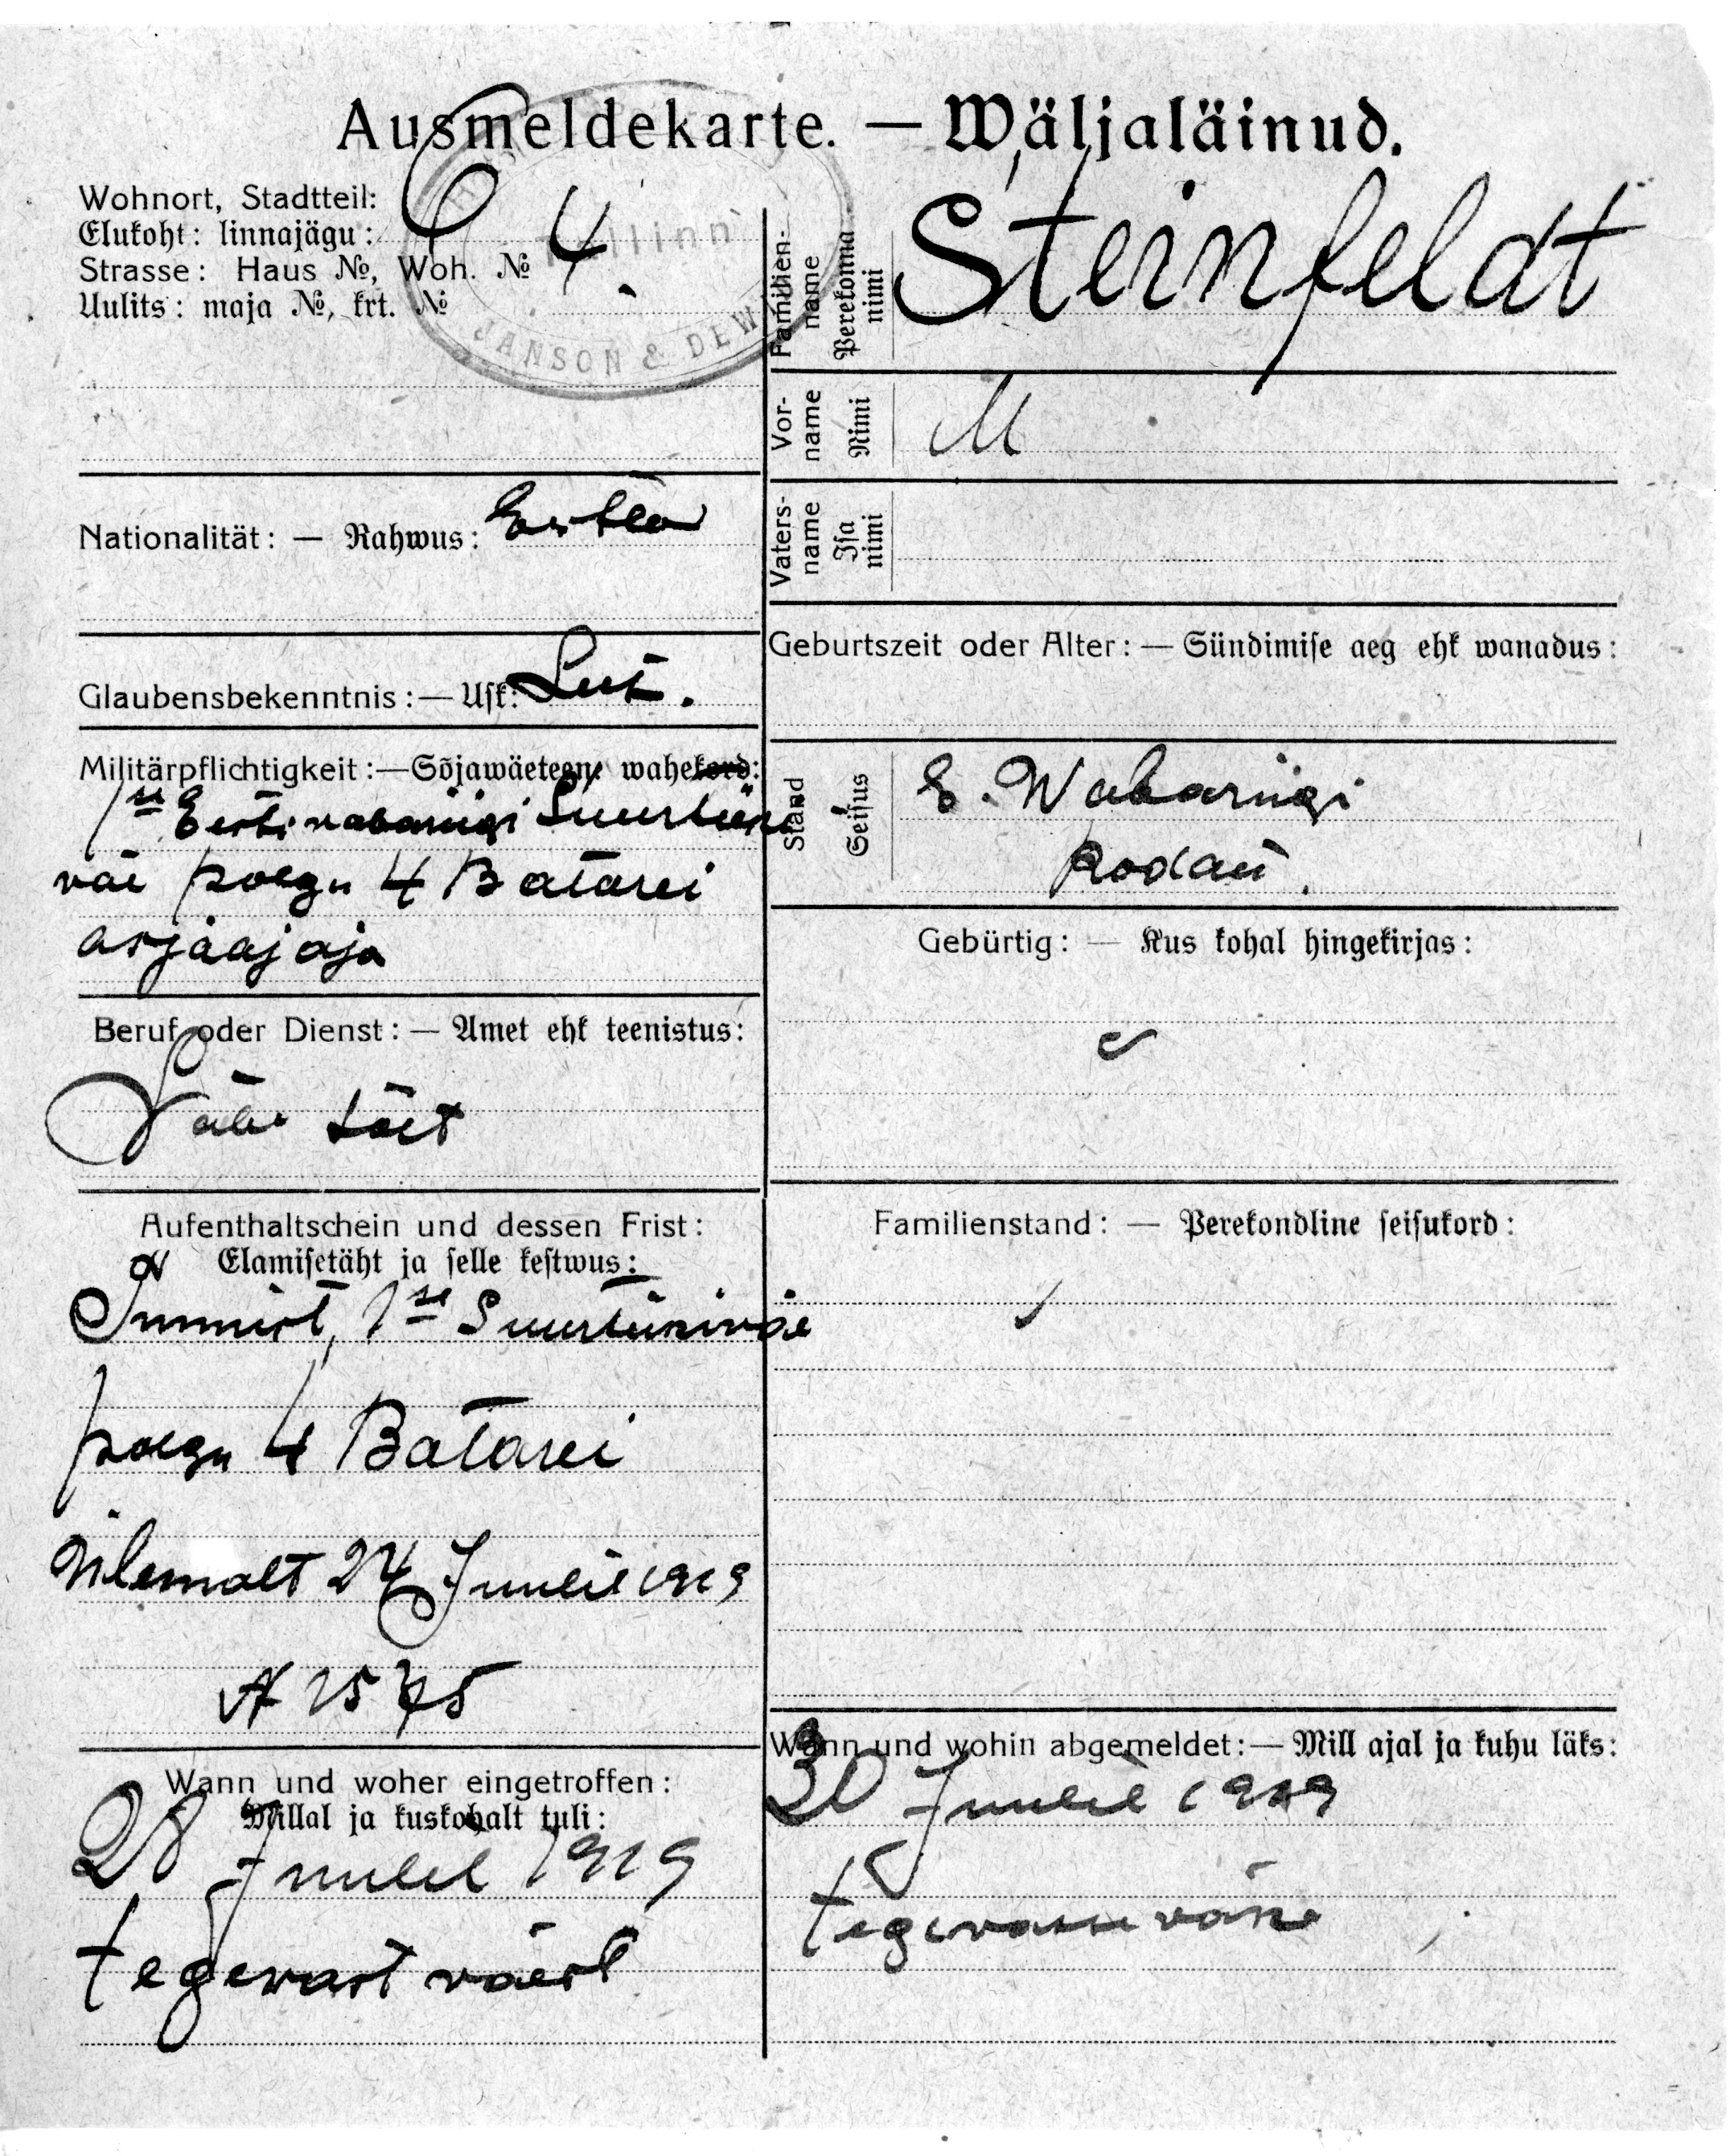 Ausmeldekarte. — Wäljaläinud.
Wohnort, Stadtteil:
Elukoht: linnajägu:
Strasse: Haus №, Woh. № 4.
Uulits: maja №, krt. №
Tallinn
JANSON & DEW
Nationalität: — Rahwus: Eestla
Glaubensbekenntnis: — Usk: Lut.
Militärpflichtigkeit: — Sõjawäeteen. wahekord:
1se Eesti vabariigi Suurtüki
väe poegu 4 Batarei
asjaajaja
Beruf oder Dienst: — Amet ehk teenistus:
Läbi sõit
Aufenthaltschein und dessen Frist:
Elamisetäht ja selle kestwus:
1se Suurtükiväe
poegu 4 Batarei
ülemalt 24 Juulil 1919
№ 1575
Wann und woher eingetroffen:
Millal ja kuskohalt tuli:
28 Juulil 1919
tegevast väest
Familien-
name
Perekonna
nimi
Steinfeldt
Vor-
name
Nimi
M
Vaters-
name
Isa
nimi
Geburtszeit oder Alter: — Sündimise aeg ehk wanadus:
Stand
Seisus
E. Wabariigi
kodan.
Gebürtig: — Kus kohal hingekirjas:
Familienstand: — Perekondline seisukord:
Wann und wohin abgemeldet: — Mill ajal ja kuhu läks:
30 Juulil 1919
tegevasse väke